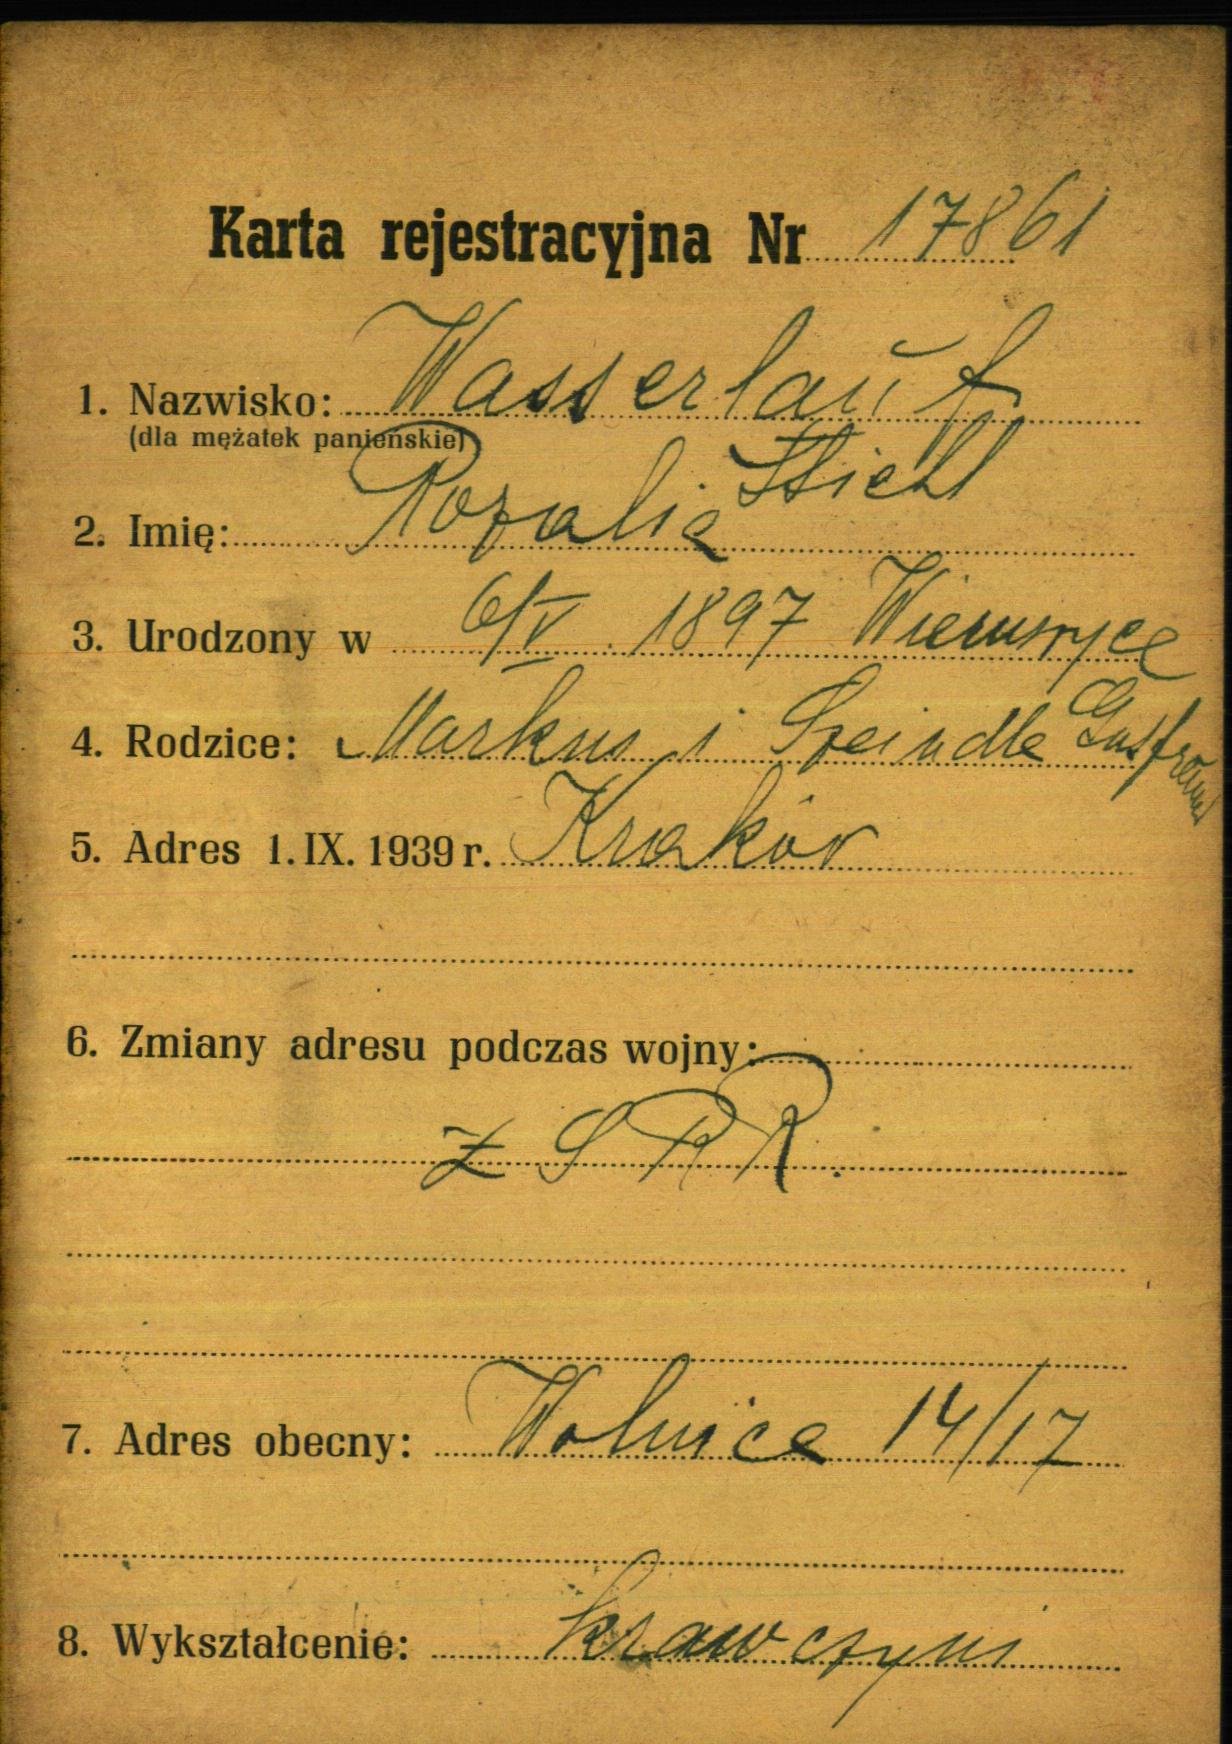 Karta rejestracyjna Nr 17861
1. Nazwisko: Wasserlauf
(dla mężatek panieńskie)
2. Imię: Rozalia
3. Urodzony w 6/V. 1897
4. Rodzice: Markus i
5. Adres 1. IX. 1939 r. Kraków
6. Zmiany adresu podczas wojny:
Z S R R.
7. Adres obecny: Wolnica 14/17
8. Wykształcenie: krawczyni